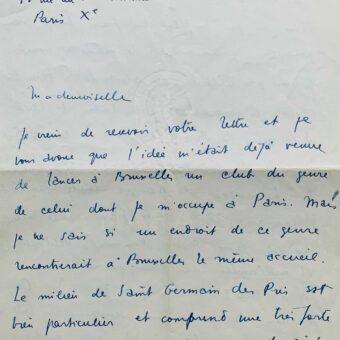 Paris Xe
Mademoiselle
Je viens de recevoir votre lettre et je
vous avoue que l'idée m'était déjà venue
de lancer à Bruxelles un club du genre
de celui dont je m'occupe à Paris. Mais
je ne sais si un endroit de ce genre
rencontrerait à Bruxelles le même accueil.
Le milieu de Saint Germain des Prés est
bien particulier et comprend une très forte